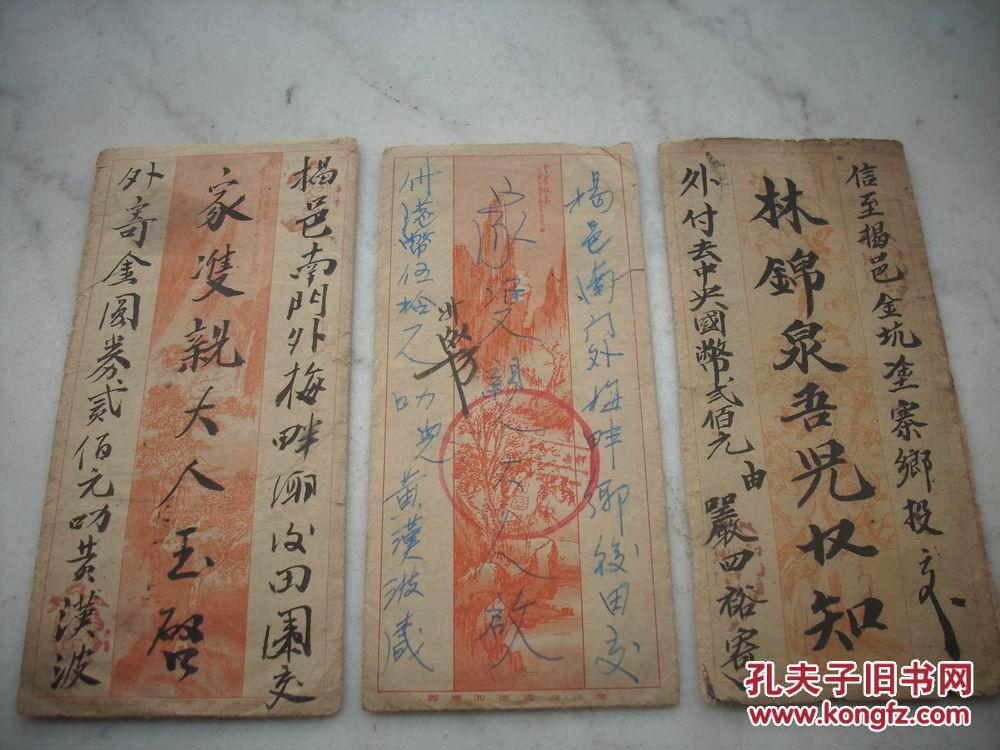 揭邑南門外梅畔鄉後田園交
家雙親大人玉啓
外寄金圓券貳佰元叻黄漢波
揭邑南门外梅畔鄉後田交
家双親大人啟
付港幣伍拾元叻兒黃漢波
信至揭邑金坑塗寨鄉投交
林錦泉吾兒收知
外付去中央國幣弍佰元
由嚴四裕寄
孔夫子旧书网
www.kongfz.com